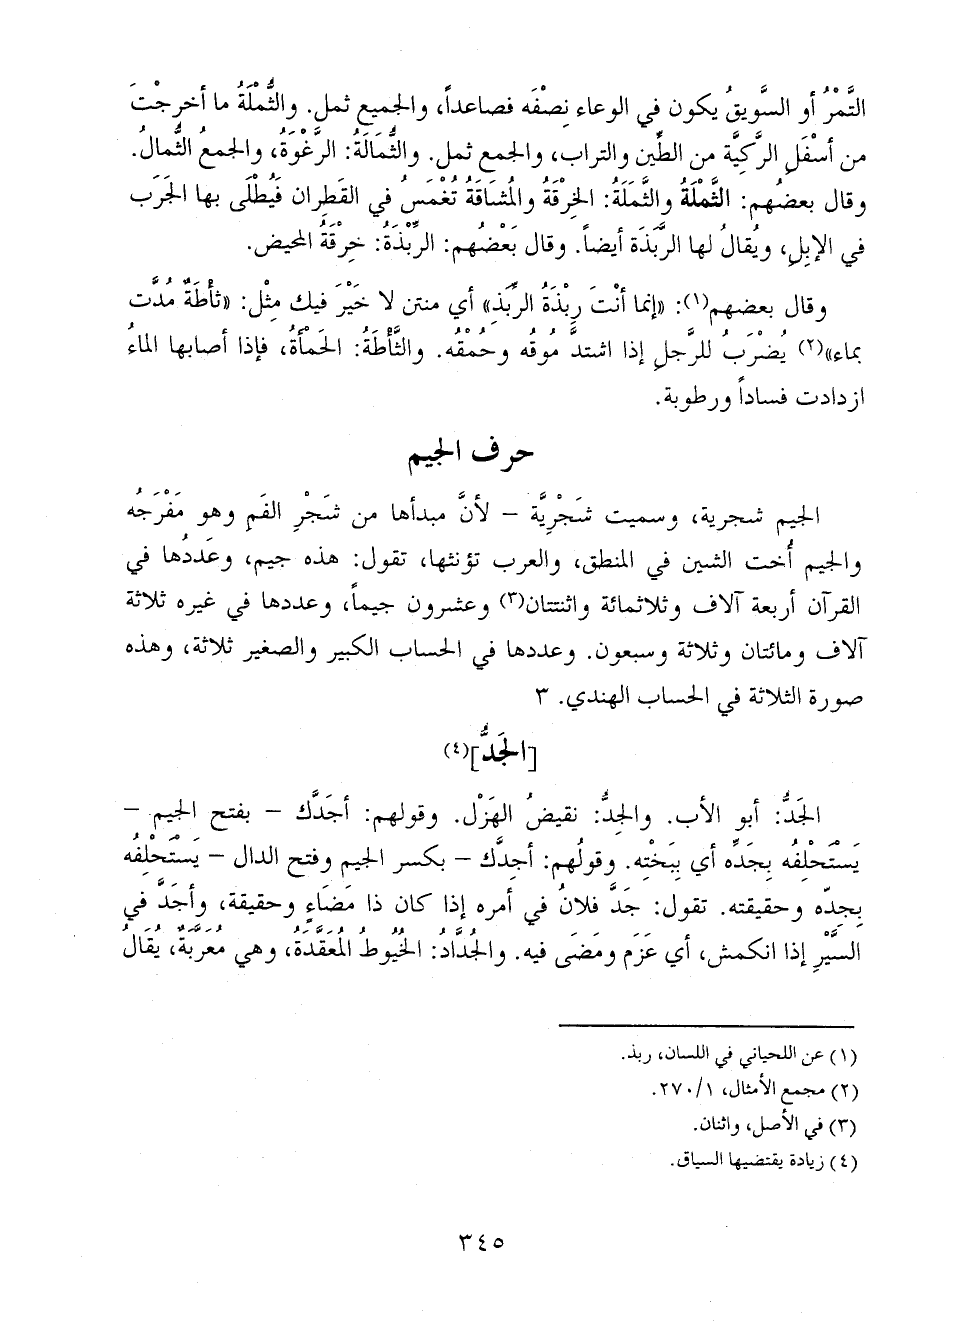 التَّمْرُ أو السَّويقُ يكون في الوعاء نِصْفَه فصاعداً، والجميع ثمل. والثُّمْلَةُ ما أخرجْتَ
من أسْفَلِ الرَّكيَّة من الطِّين والتراب، والجمع ثمل. والثُّمَالَةُ: الرَّغْوَةُ، والجمعُ الثُّمالُ.
وقال بعضُهم: الثَّمْلَةُ والثَّمَلَةُ: الخِرْقَةُ والمُشَاقَةُ تُغْمَسُ في القَطِران فَيُطْلَى بها الجَرَب
في الإبِلِ، ويُقالُ لها الرَّبَذَة أيضاً. وقال بَعْضُهم: الرِّبْذَةُ: خِرْقَةُ المحيض.
وقال بعضهم(١): «إنما أنْتَ رِبْذَةُ الرِّبَذِ» أي منتن لا خَيْرَ فيك مِثْل: «ثأْطَةٌ مُدَّت
بماء»(٢) يُضْرَبُ للرَّجلِ إذا اشتدَّ مُوقُه وحُمْقُه. والثَّأْطَةُ: الحَمْأَةُ، فإذا أصابها الماءُ
ازدادت فساداً ورطوبة.
حرف الجيم
الجيم شجرية، وسميت شَجْرِيَّة – لأنَّ مبدأها من شَجْرِ الفَمِ وهو مَفْرَجُه
والجيم أُخت الشين في المنطق، والعرب تؤنثها، تقول: هذه جيم، وعَددُها في
القرآن أربعة آلاف وثلاثمائة واثنتتان(٣) وعشرون جيماً، وعددها في غيره ثلاثة
آلاف ومائتان وثلاثة وسبعون. وعددها في الحساب الكبير والصغير ثلاثة، وهذه
صورة الثلاثة في الحساب الهندي. ٣
[الجَدُّ](٤)
الجَدُّ: أبو الأب. والجِدُّ: نقيضُ الهَزْل. وقولهم: أجَدَّك – بفتح الجيم –
يَسْتَحْلِفُه بِجَدِّه أي بِبَخْتِه. وقولُهم: أجِدَّك – بكسر الجيم وفتح الدال – يَسْتَحْلِفُه
بِجدّه وحقيقته. تقول: جَدَّ فلانُ في أمره إذا كان ذا مَضَاءٍ وحقيقة، وأجَدَّ في
السَّيْرِ إذا انكمش، أي عَزَم ومَضَى فيه. والجُدَّاد: الخُيُوطُ المُعَقَّدَة، وهي مُعَرَّبَةٌ، يُقَالُ
(١) عن اللحياني في اللسان، ربذ.
(٢) مجمع الأمثال، ١/٢٧٠.
(٣) في الأصل، واثنان.
(٤) زيادة يقتضيها السياق.
٣٤٥